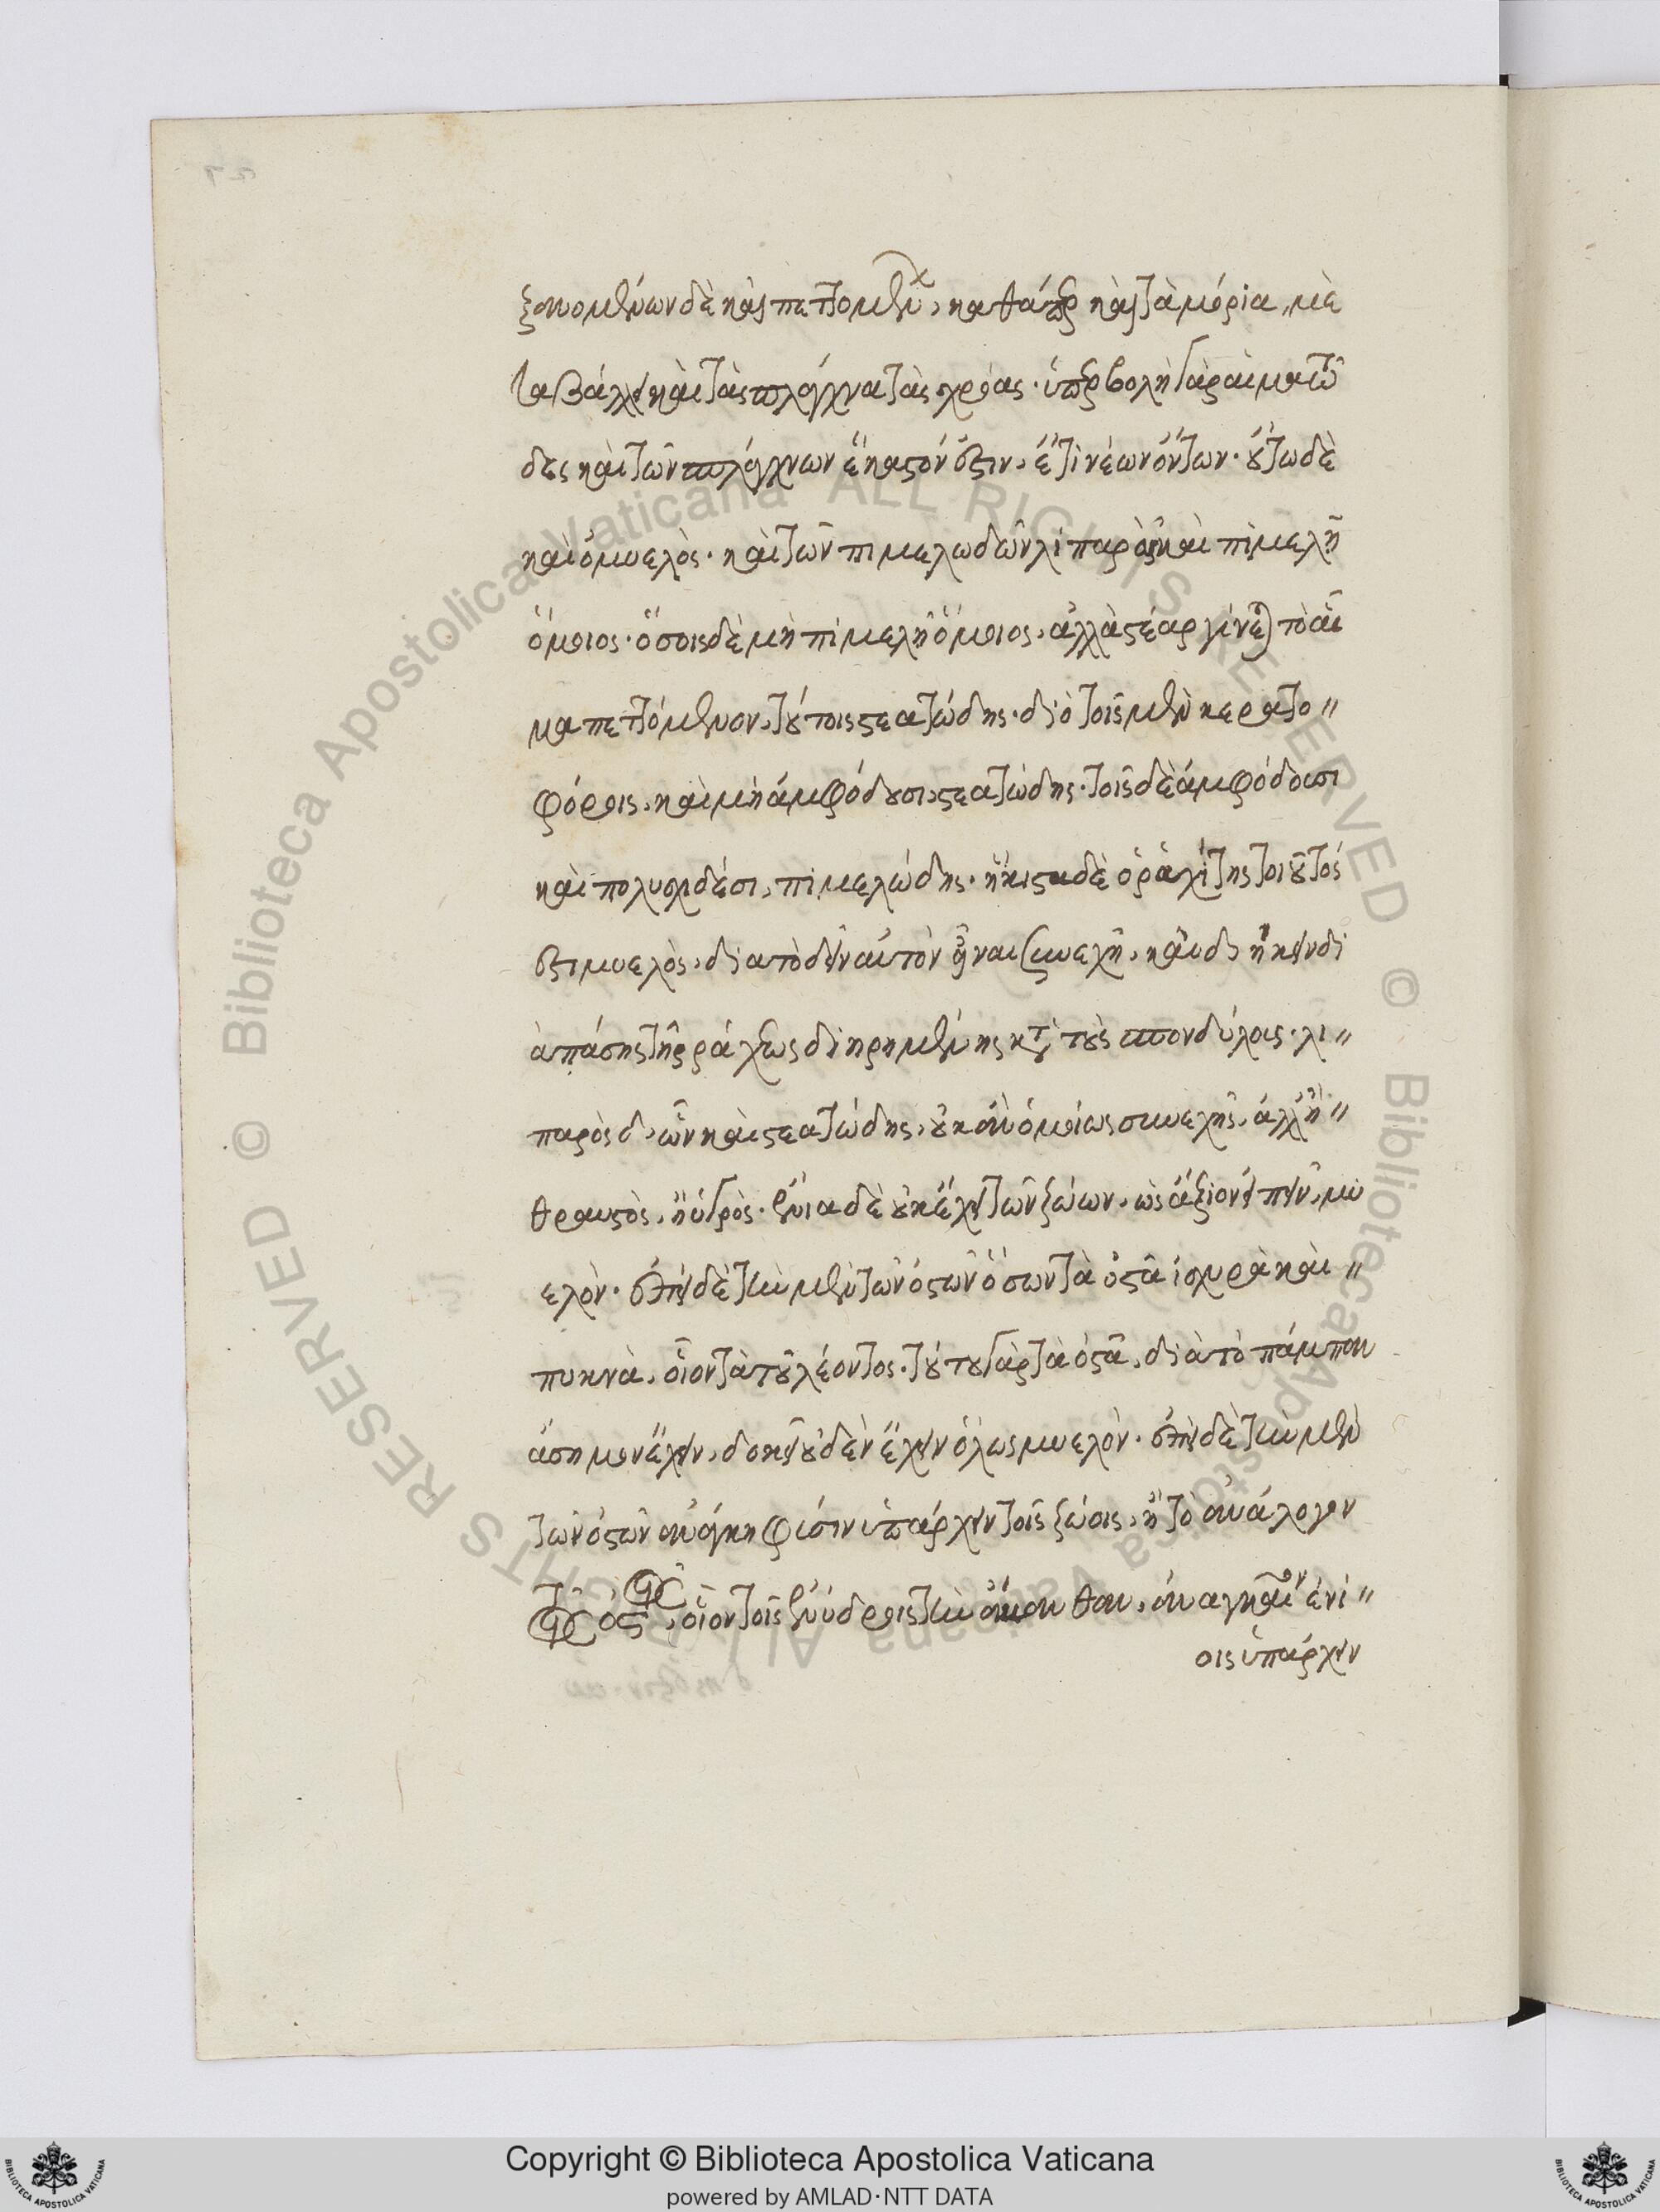 ξανομένων δὲ καὶ πεττομένων, καθάπερ καὶ τὰ μόρια, με
ταβάλλει καὶ τὰ σπλάγχνα τὰς χρόας· ὑπερβολῇ γὰρ αἱματῶ
δες καὶ τῶν σπλάγχνων ἕκαστόν ἐστιν, ἔτι νέων ὄντων· οὕτω δὲ
καὶ ὁ μυελὸς· καὶ τῶν πιμελωδῶν λιπαρὸς καὶ πιμελῇ
ὅμοιος· ὅσοις δὲ μὴ πιμελῇ ὅμοιος, ἀλλὰ στέαρ γίνεται τὸ αἷ
μα πεττόμενον, τούτοις στεατώδης· διὸ τοῖς μὲν κερατο〃
φόροις, καὶ μὴ ἀμφόδουσι, στεατώδης· τοῖς δὲ ἀμφόδουσι
καὶ πολυσχιδέσι, πιμελώδης· ἥκιστα δὲ ὁ ῥαχίτης τοιοῦτός
ἐστι μυελὸς, διὰ τὸ δεῖν αὐτὸν εἶναι συνεχῆ, καὶ διήκειν δι
ὰ πάσης τῆς ράχεως διῃρημένης κατὰ τοὺς σπονδύλους· λι〃
παρὸς δ' ὢν καὶ στεατώδης, οὐκ ἂν ὁμοίως συνεχὴς, ἀλλ' ἢ〃
θραυστὸς, ἢ ὑγρὸς· ἔνια δὲ οὐκ ἔχει τῶν ζῴων, ὡς ἄξιον εἰπεῖν, μυ
ελὸν· ἐπεὶ δὲ τὴν μὲν τῶν ὀστῶν ὅσων τὰ ὀστᾶ ἰσχυρὰ καὶ〃
πυκνὰ, οἷον τὰ τοῦ λέοντος· τούτου γὰρ τὰ ὀστᾶ, διὰ τὸ πάμπαν
ἄσημον ἔχειν, δοκεῖ οὐδὲν ἔχειν ὅλως μυελὸν· ἐπεὶ δὲ τὴν μὲν
τῶν ὀστῶν ἀνάγκη φύσιν ὑπάρχειν τοῖς ζῴοις, ἢ τὸ ἀνάλογον
τοῖς ὀστοῖς, οἷον τοῖς ἐνύδροις τὴν ἄκανθαν, ἀναγκαῖον ἐνί〃
οις ὑπάρχειν
Copyright © Biblioteca Apostolica Vaticana
powered by AMLAD·NTT DATA